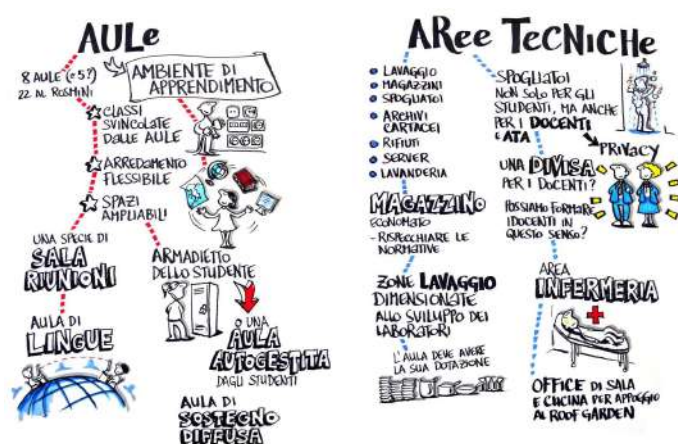 AULE
8 AULE (o 5?)
22 AL ROSMINI
AMBIENTE DI
APPRENDIMENTO
CLASSI
SVINCOLATE
DALLE AULE
ARREDAMENTO
FLESSIBILE
SPAZI
AMPLIABILI
UNA SPECIE DI
SALA
RIUNIONI
AULA DI
LINGUE
ARMADIETTO
DELLO STUDENTE
UNA
AULA
AUTOGESTITA
DAGLI STUDENTI
AULA DI
SOSTEGNO
DIFFUSA
AREE TECNICHE
LAVAGGIO
MAGAZZINI
SPOGLIATOI
ARCHIVI
CARTACEI
RIFIUTI
SERVER
LAVANDERIA
MAGAZZINO
ECONOMATO
- RISPECCHIARE LE
NORMATIVE
ZONE LAVAGGIO
DIMENSIONATE
ALLO SVILUPPO DEI
LABORATORI
L'AULA DEVE AVERE
LA SUA DOTAZIONE
SPOGLIATOI
NON SOLO PER GLI
STUDENTI, MA ANCHE
PER I DOCENTI
E ATA
PRIVACY
UNA DIVISA
PER I DOCENTI?
POSSIAMO FORMARE
I DOCENTI IN
QUESTO SENSO?
AREA
INFERMERIA
OFFICE DI SALA
E CUCINA PER APPOGGIO
AL ROOF GARDEN